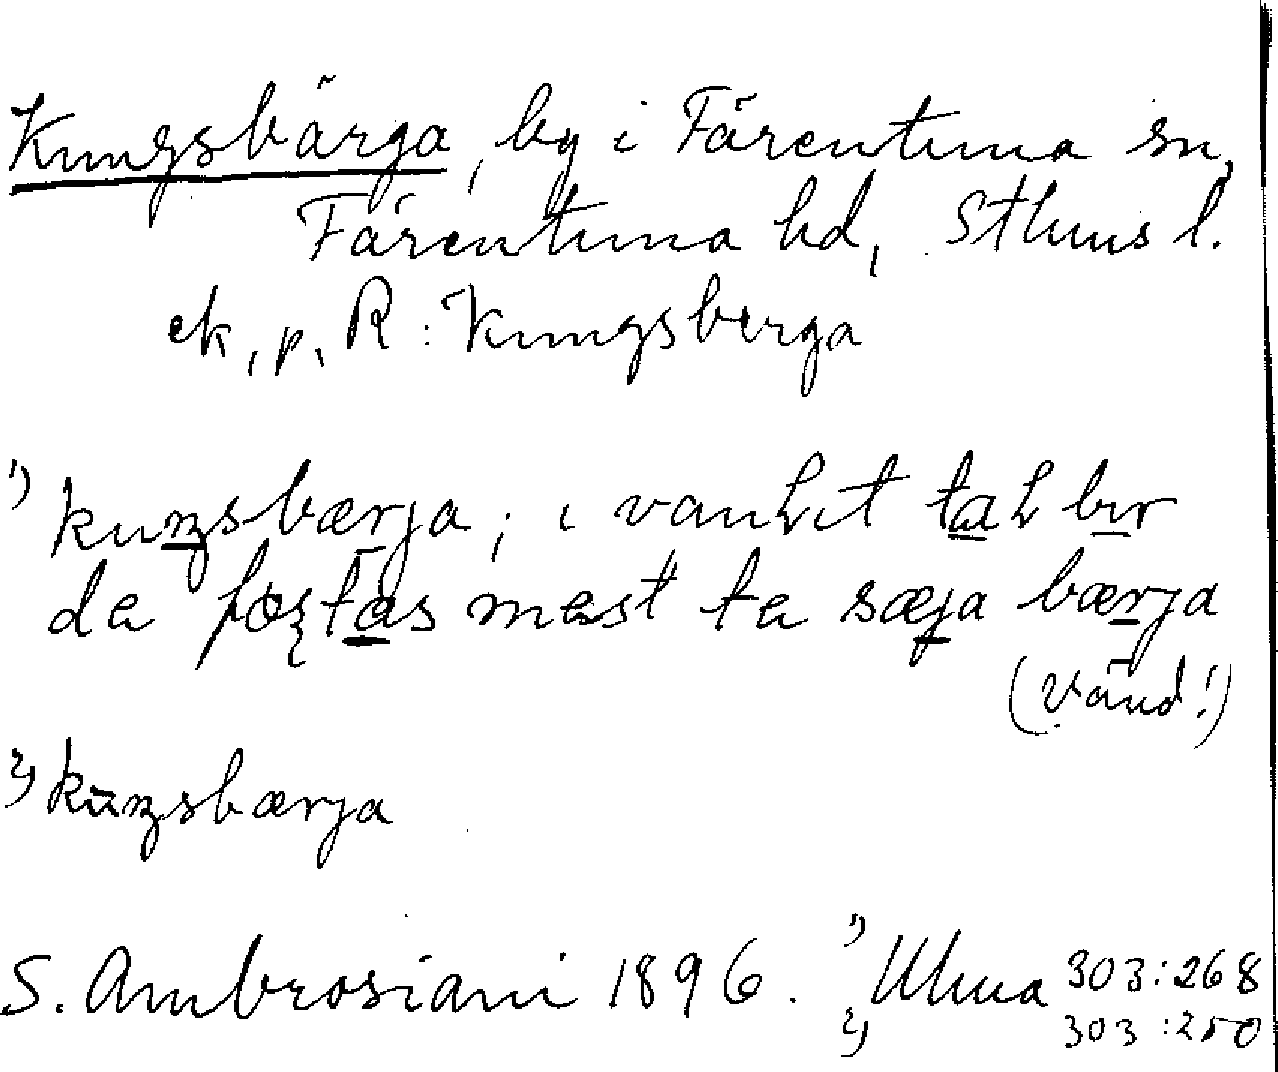 Kungsbärga, by i Färentuna sn,
Färentuna hd, Sthms l.
ek, p, R: Kungsberga
1) kuŋsbærja; i vanlit tal bir
de foʂtas mest te sæja bærja
(vänd!)
2) kūŋsbærja
S. Ambrosiani 1896. 1) Ulma 303:268
2) 303:250